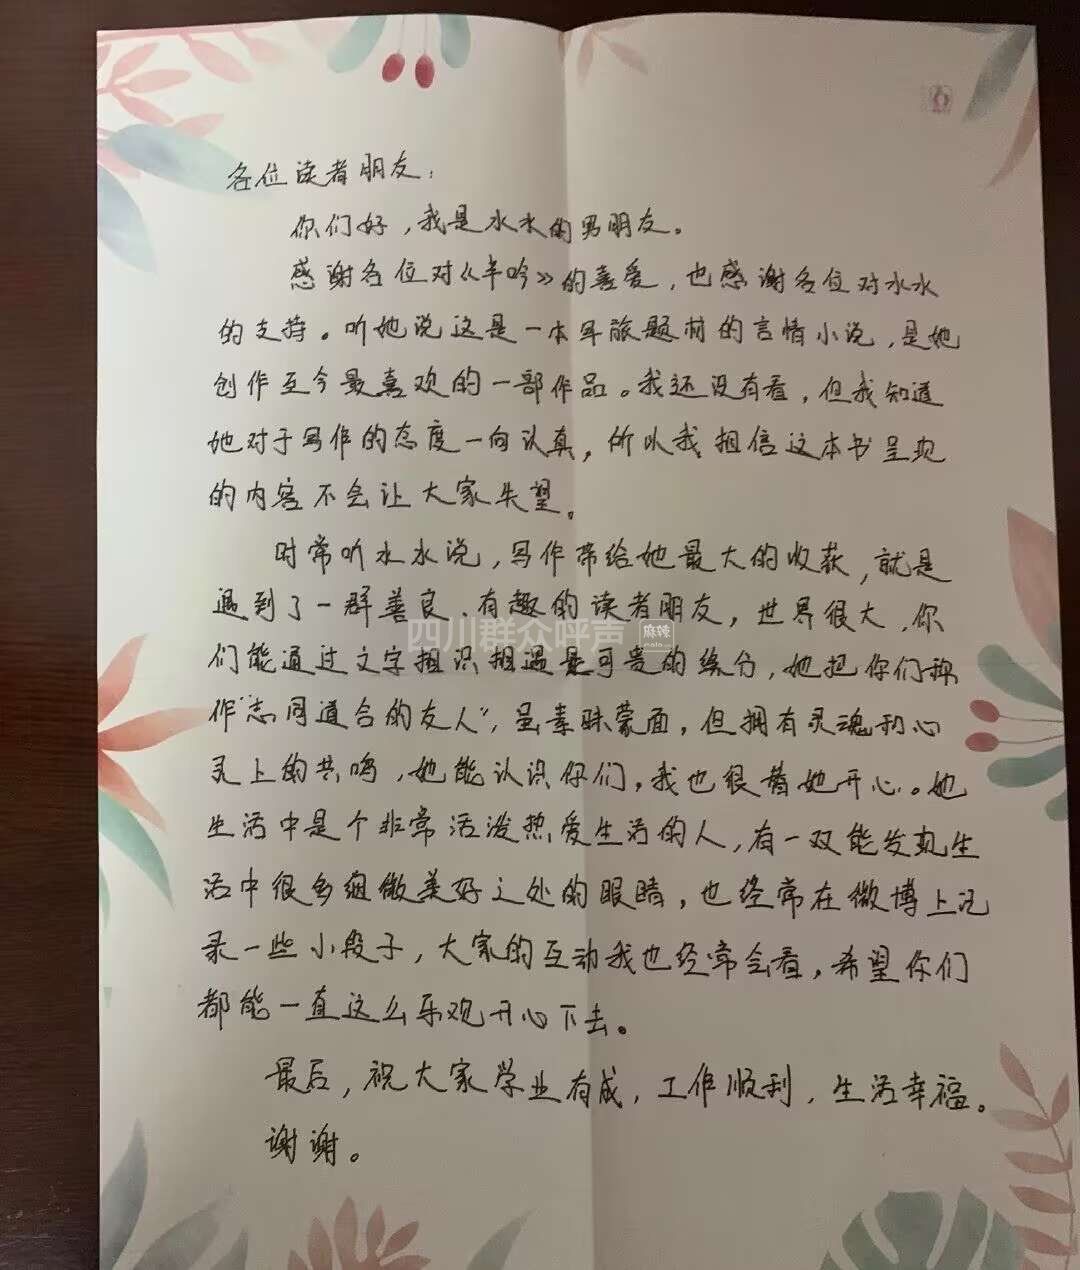 各位读者朋友：
你们好，我是水水的男朋友。
感谢各位对《半吟》的喜爱，也感谢各位对水水
的支持。听她说这是一本军旅题材的言情小说，是她
创作至今最喜欢的一部作品。我还没有看，但我知道
她对于写作的态度一向认真，所以我相信这本书呈现
的内容不会让大家失望。
时常听水水说，写作带给她最大的收获，就是
遇到了一群善良、有趣的读者朋友，世界很大，你
四川群众呼声 麻辣
们能通过文字相识相遇是可贵的缘分，她把你们称
作“志同道合的友人”，虽素昧蒙面，但拥有灵魂和心
灵上的共鸣，她能认识你们，我也很替她开心。她
生活中是个非常活泼热爱生活的人，有一双能发现生
活中很多细微美好之处的眼睛，也经常在微博上记
录一些小段子，大家的互动我也经常会看，希望你们
都能一直这么乐观开心下去。
最后，祝大家学业有成，工作顺利，生活幸福。
谢谢。